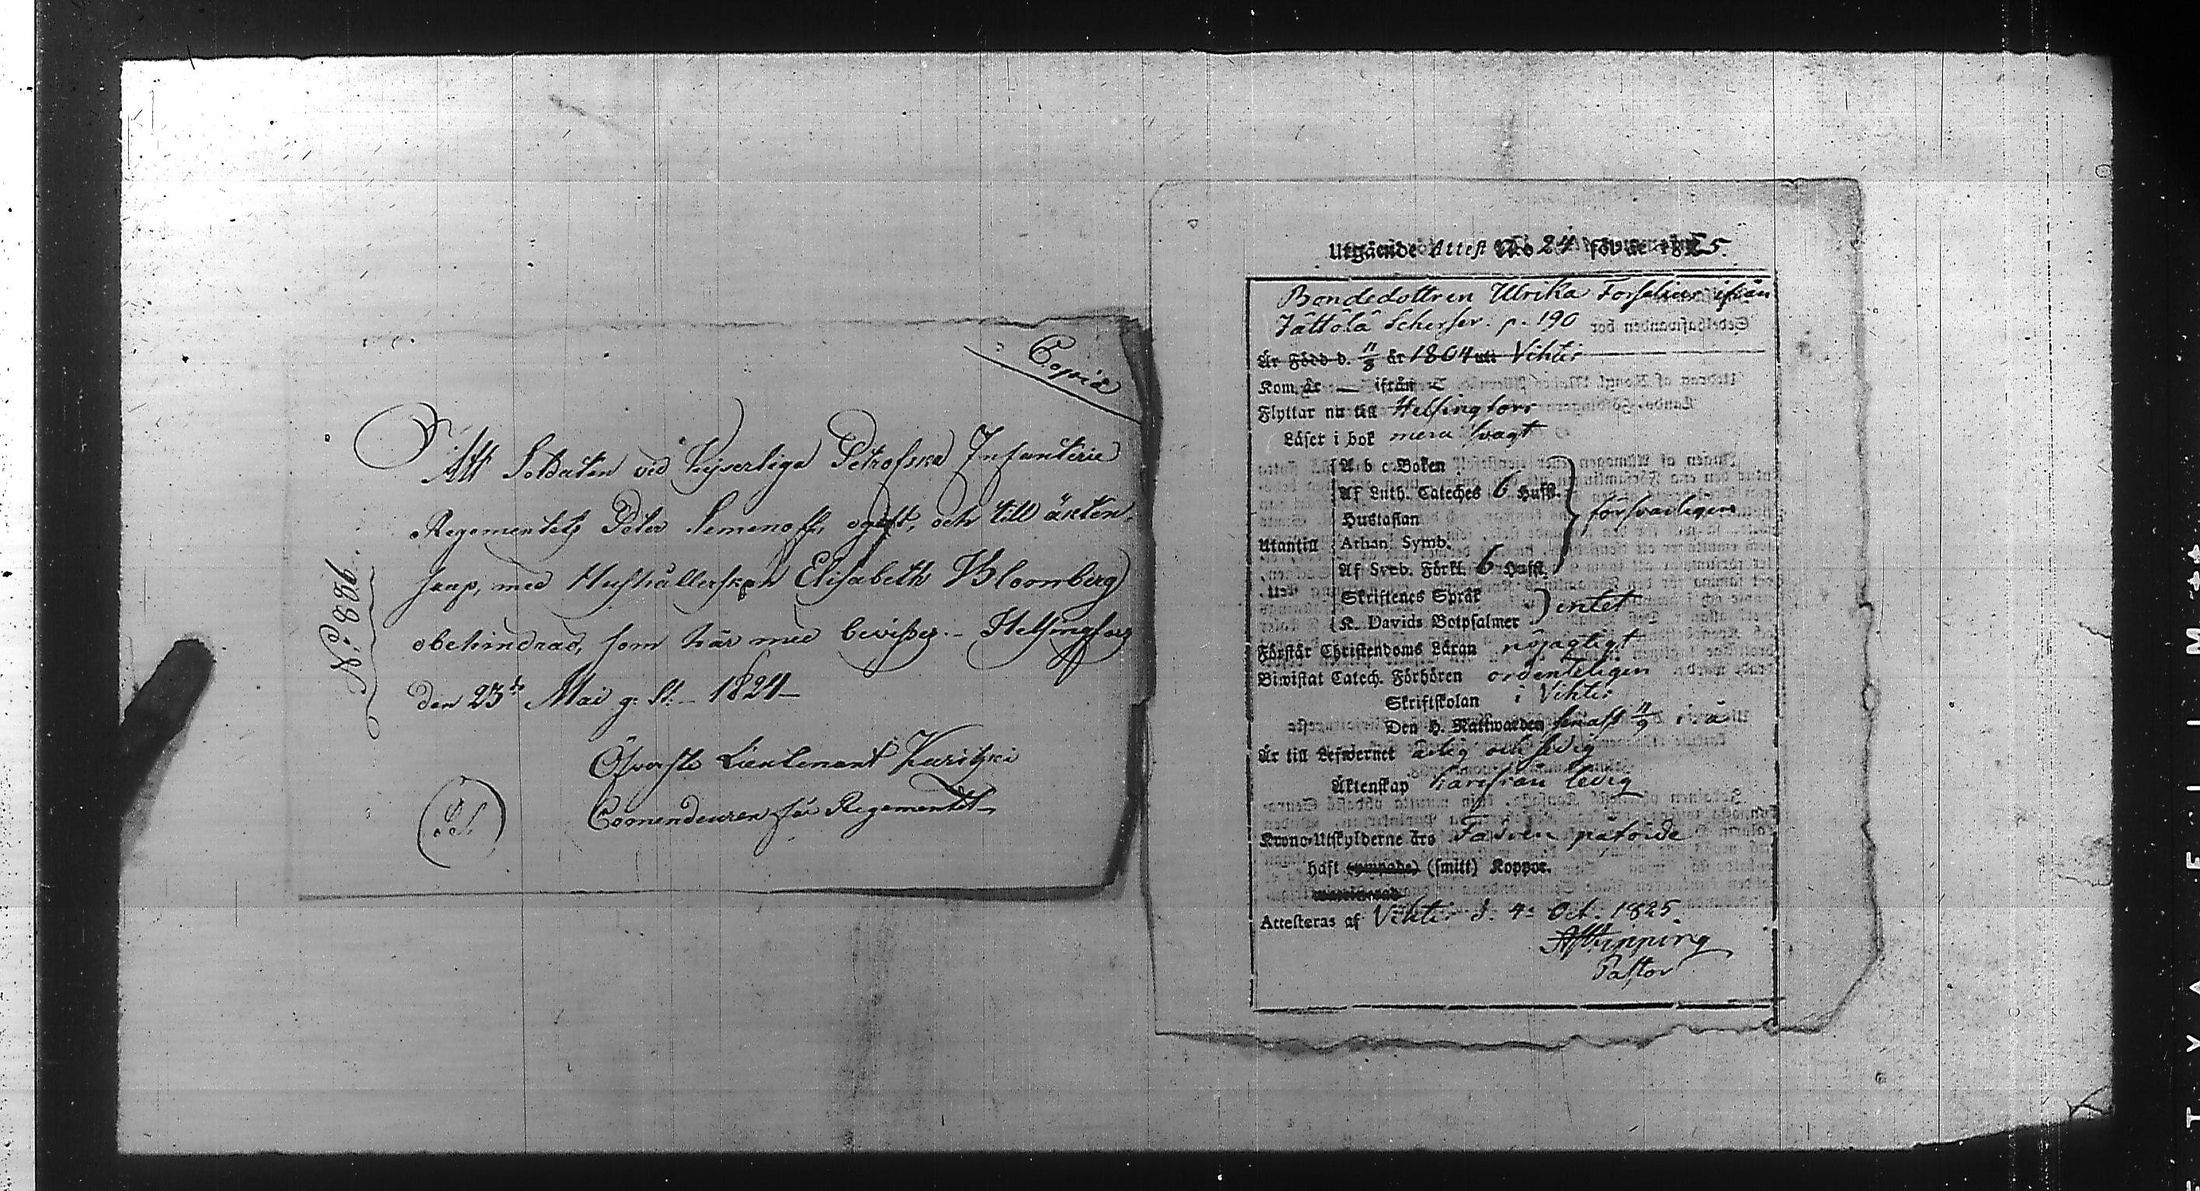 Copia
Att Soldaten vid Kejserliga Petrofska Infanterie
Regementets Peter Semenoff, ogift, och till äkten-
skap, med Hushållerskan Elisabeth Bloomberg
obehindrad, som här med bevises. - Helsingfors
den 23 Mai g. St. - 1824 -
Öfverste Lieutenant Kuritzki
Commendeuren för Regementet
N: 886.
Utgående Attest N:o 24 för år 1825.
Bondedottren Ulrika Forselius ifrån
p. 190
Är Född d. 11/8 år 1804 uti Vihtis
Kom år — ifrån —
Flyttar nu till Helsingfors
Läser i bok mera svagt
Utantill
A b c Boken
Af Luth. Cateches 6 Hufst.
Hustaflan
Athan. Symb.
Af Sveb. Förkl. 6 Hufst.
försvarligen
Skriftenes Språk
K. Davids Botpsalmer
intet
Förstår Christendoms Läran nöjagtigt
Biwistat Catech. Förhören ordenteligen
Skriftskolan i Vihtis
Den H. Nattwarden senast 11/9 i å
Är till Lefwernet ärlig och
Äktenskap härifrån ledig
Krono-Utskylderne års Fadren påförde
haft (ympade) (smitt) Koppor.
Attesteras af Vihtis d. 4: Oct. 1825.
Pastor